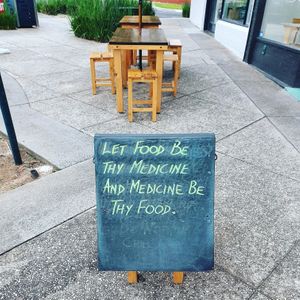 Let Food Be
Thy Medicine
And Medicine Be
Thy Food.